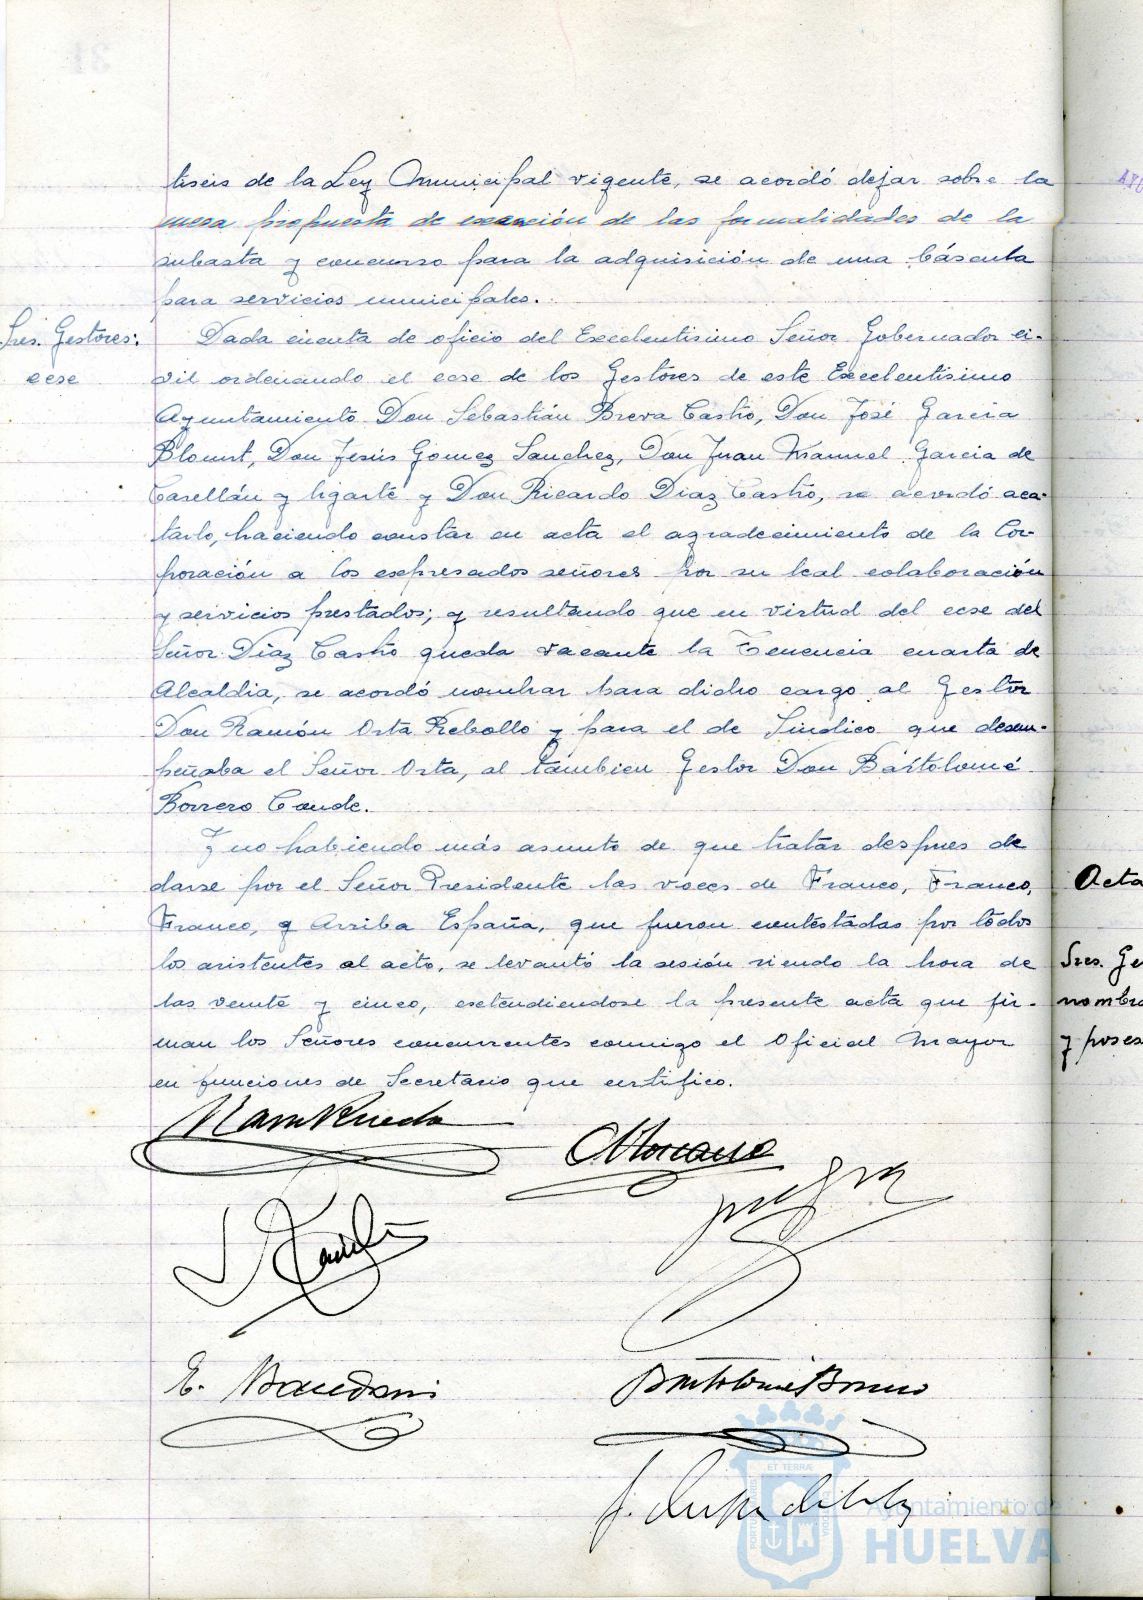 tiseis de la Ley Municipal vigente, se acordó dejar sobre la
mesa propuesta de exención de las formalidades de la
subasta y concurso para la adquisición de una báscula
para servicios municipales.
Sres. Gestores:
cese
Dada cuenta de oficio del Excelentisimo Señor Gobernador ci-
vil ordenando el cese de los Gestores de este Excelentisimo
Ayuntamiento Don Sebastián Breva Castro, Don José Garcia
Blount, Don Jesús Gomez Sanchez, Don Juan Manuel Garcia de
Casellán y Ugarte y Don Ricardo Diaz Castro, se acordó aca-
tarlo, haciendo constar en acta el agradecimiento de la Cor-
poración a los expresados señores por su leal colaboración
y servicios prestados; y resultando que en virtud del cese del
Señor Diaz Castro queda vacante la Tenencia cuarta de
Alcaldia, se acordó nombrar para dicho cargo al Gestor
Don Ramón Orta Rebollo y para el de Sindico que desem-
peñaba el Señor Orta, al tambien Gestor Don Bartolomé
Borrero Conde.
Y no habiendo más asunto de que tratar despues de
darse por el Señor Presidente las voces de Franco, Franco,
Franco, y Arriba España, que fueron contestadas por todos
los asistentes al acto, se levantó la sesión siendo la hora de
las veinte y cinco, extendiendose la presente acta que fir-
man los Señores concurrentes conmigo el Oficial Mayor
en funciones de Secretario que certifico.
E.
Bartolomé Borrero
Acta
Sres. Ge
nombra
y poses
Ayuntamiento de
HUELVA